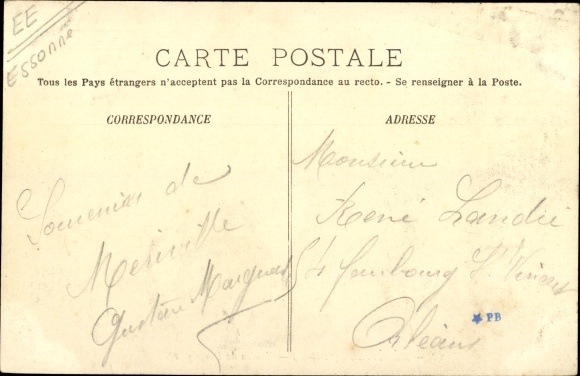 EE
ESSONNE
CARTE POSTALE
Tous les Pays étrangers n'acceptent pas la Correspondance au recto. - Se renseigner à la Poste.
CORRESPONDANCE
Souvenir de
Meréville
Gustave
ADRESSE
Monsieur
René
Faubourg St Vincent
Orléans
PB